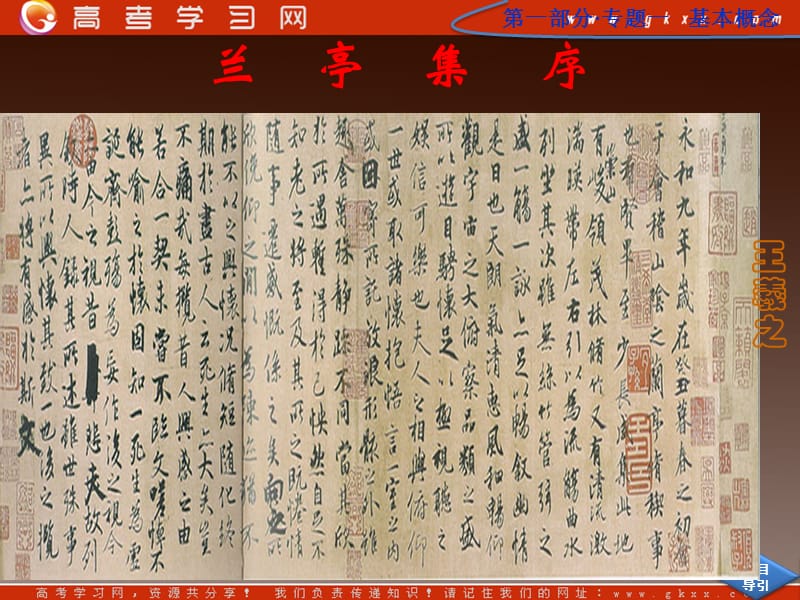 高考学习网
第一部分·专题一 基本概念
www.gkxx.com
兰亭集序
永和九年歲在癸丑暮春之初會
于會稽山陰之蘭亭脩稧事
也群賢畢至少長咸集此地
有崇山峻領茂林脩竹又有清流激
湍暎帶左右引以為流觴曲水
列坐其次雖無絲竹管弦之
盛一觴一詠亦足以暢敘幽情
是日也天朗氣清惠風和暢仰
觀宇宙之大俯察品類之盛
所以遊目騁懷足以極視聽之
娛信可樂也夫人之相與俯仰
一世或取諸懷抱悟言一室之內
或因寄所託放浪形骸之外雖
趣舍萬殊靜躁不同當其欣
於所遇暫得於己怏然自足不
知老之將至及其所之既惓情
隨事遷感慨係之矣向之所
欣俛仰之間以為陳迹猶不
能不以之興懷況脩短隨化終
期於盡古人云死生亦大矣豈
不痛哉每攬昔人興感之由
若合一契未嘗不臨文嗟悼不
能喻之於懷固知一死生為虛
誕齊彭殤為妄作後之視今
亦由今之視昔悲夫故列
敘時人錄其所述雖世殊事
異所以興懷其致一也後之攬
者亦將有感於斯文
王羲之
目
导引
高考学习网，资源共分享！ 我们负责传递知识！请记住我们的网址：www.gkxx.c